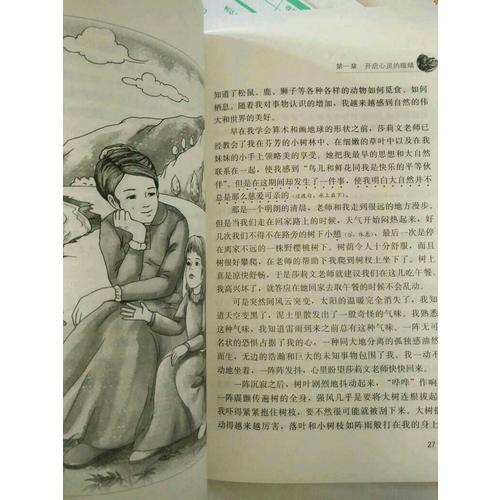 第一章 开启心灵的眼睛
知道了松鼠、鹿、狮子等各种各样的动物如何觅食、如何
栖息。随着我对事物认识的增加，我越来越感到自然的伟
大和世界的美好。
早在我学会算术和画地球的形状之前，莎莉文老师已
经教会了我在芬芳的小树林中、在细嫩的草叶中以及在我
妹妹的小手上领略美的享受。她把我最早的思想和大自然
联系在一起，使我感到“鸟儿和鲜花同我是快乐的平等伙
伴”。但是在这期间却发生了一件事，使我明白大自然并不
总是那么慈爱可亲的
那是一个明朗的清晨，老师和我走到很远的地方漫步。
但是当我们走在回家路上的时候，天气开始闷热起来，好
几次我们不得不在路旁的树下小憩，最后一次是停
在离家不远的一株野樱桃树下。树荫令人十分舒服，而且
树很好攀爬，在老师的帮助下我爬到树杈上坐了下。树上
真是凉快舒畅，于是莎莉文老师就建议我们在这儿吃午餐。
我高兴坏了，就答应在她回家去取午餐的时候不会乱动。
可是突然间风云突变，太阳的温暖完全消失了，我知
道天空变黑了，泥土里散发出了一股奇怪的气味。我熟悉
这种气味，我知道雷雨到来之前总有这种气味。一阵无可
名状的恐惧占据了我的心，一种同大地分离的孤独感油然
而生，无边的浩瀚和巨大的未知事物包围了我。我一动不
动地坐着，一阵阵发抖，心里盼望莎莉文老师快快回来。
一阵沉寂之后，树叶剧烈地抖动起来，“哗哗”作响，
一阵震颤传遍树的全身，强风几乎是要将大树连根拔起，
我吓得紧紧抱住树枝，要不然很可能就被刮下来。大树摇
动得越来越厉害，落叶和小树枝如阵雨般打在我的身上
27